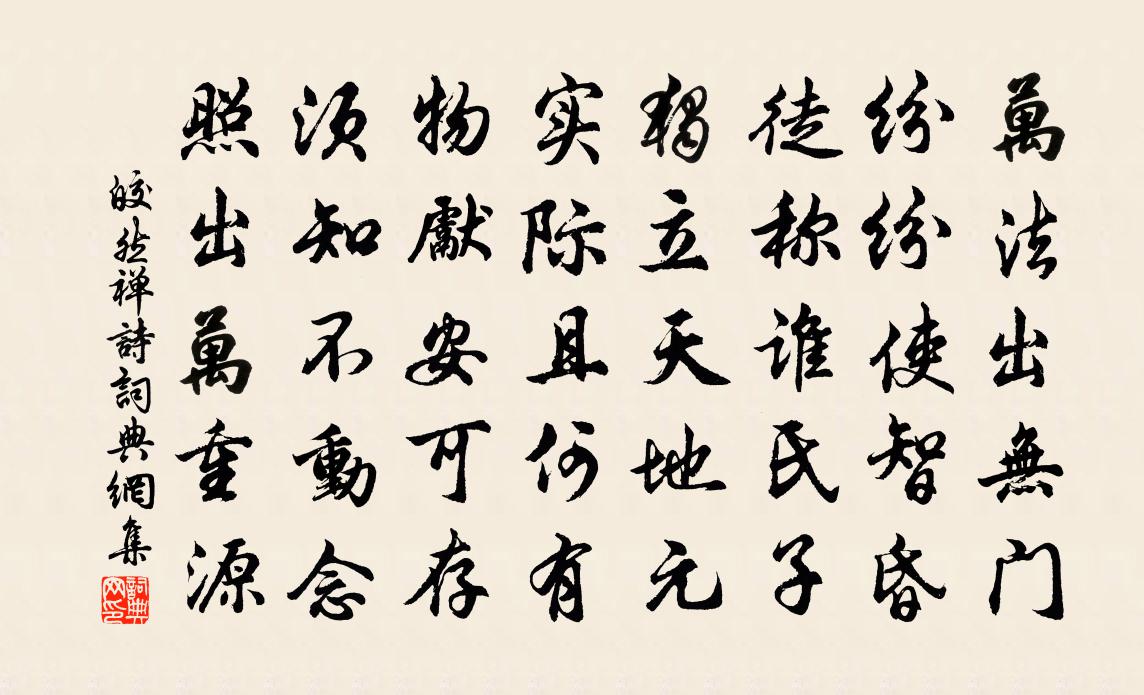 萬法出無门
纷纷使智昏
徒称谁氏子
獨立天地元
实际且何有
物獻安可存
须知不動念
照出萬重源
皎然禅詩詞典網集
詞典网印